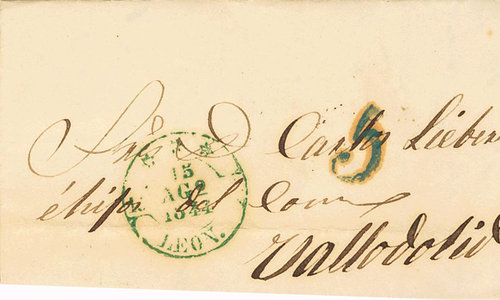 Sres D Carlos Lieben
é hijos del Com
Valladolid
5
15
AGO
1844
LEON.